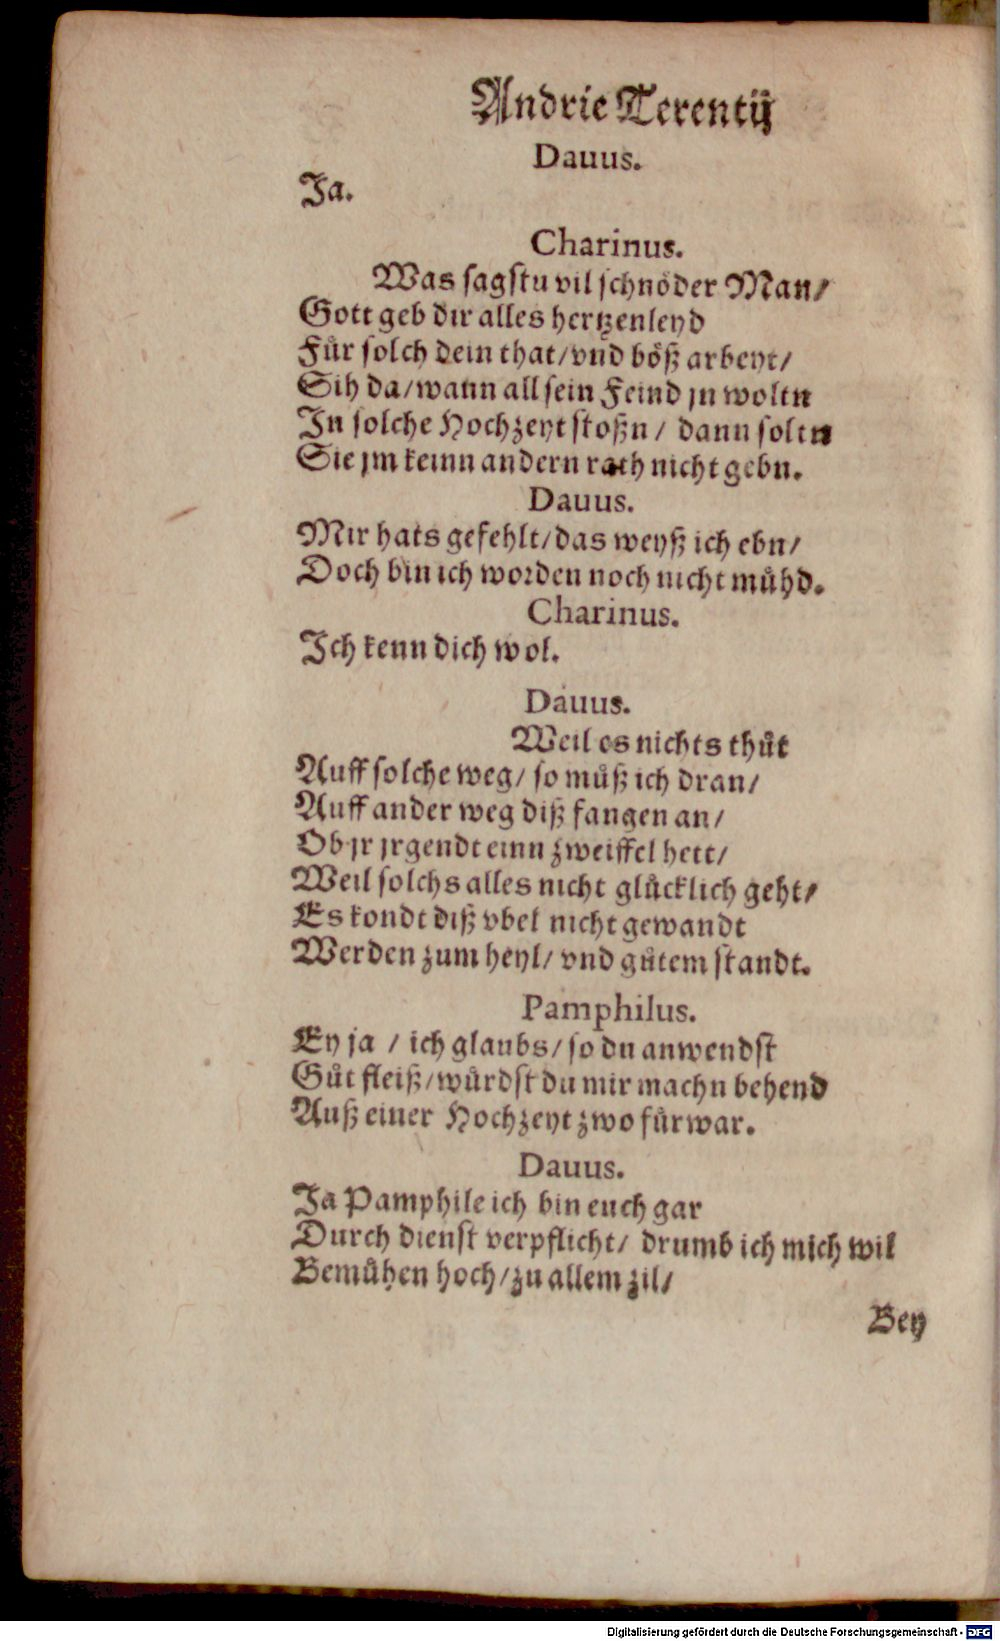 Andrie Terentij
Dauus.
Ja.
Charinus.
Was sagstu vil schnöder Man/
Gott geb dir alles hertzenleyd
Fuͤr solch dein that/vnd böß arbeyt/
Sih da/wann all sein Feind jn woltn
In solche Hochzeyt stoßn/ dann soltn
Sie jm keinn andern rath nicht gebn.
Dauus.
Mir hats gefehlt/das weyß ich ebn/
Doch bin ich worden noch nicht muͤhd.
Charinus.
Ich kenn dich wol.
Dauus.
Weil es nichts thuͤt
Auff solche weg/ so muͤß ich dran/
Auff ander weg diß fangen an/
Ob jr jrgendt einn zweiffel hett/
Weil solchs alles nicht gluͤcklich geht/
Es kondt diß vbel nicht gewandt
Werden zum heyl/ vnd guͤtem standt.
Pamphilus.
Ey ja / ich glaubs/ so du anwendst
Guͤt fleiß/wuͤrdst du mir machn behend
Auß einer Hochzeyt zwo fuͤrwar.
Dauus.
Ja Pamphile ich bin euch gar
Durch dienst verpflicht/ drumb ich mich wil
Bemuͤhen hoch/zu allem zil/
Bey
Digitalisierung gefördert durch die Deutsche Forschungsgemeinschaft - DFG